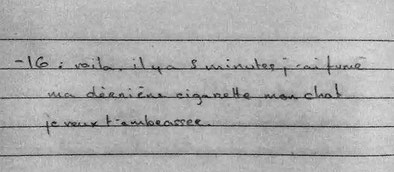 -16 : voila. il y a 5 minutes j'ai fumé
ma dérnière cigarette mon chat
je veux t'embrasser.